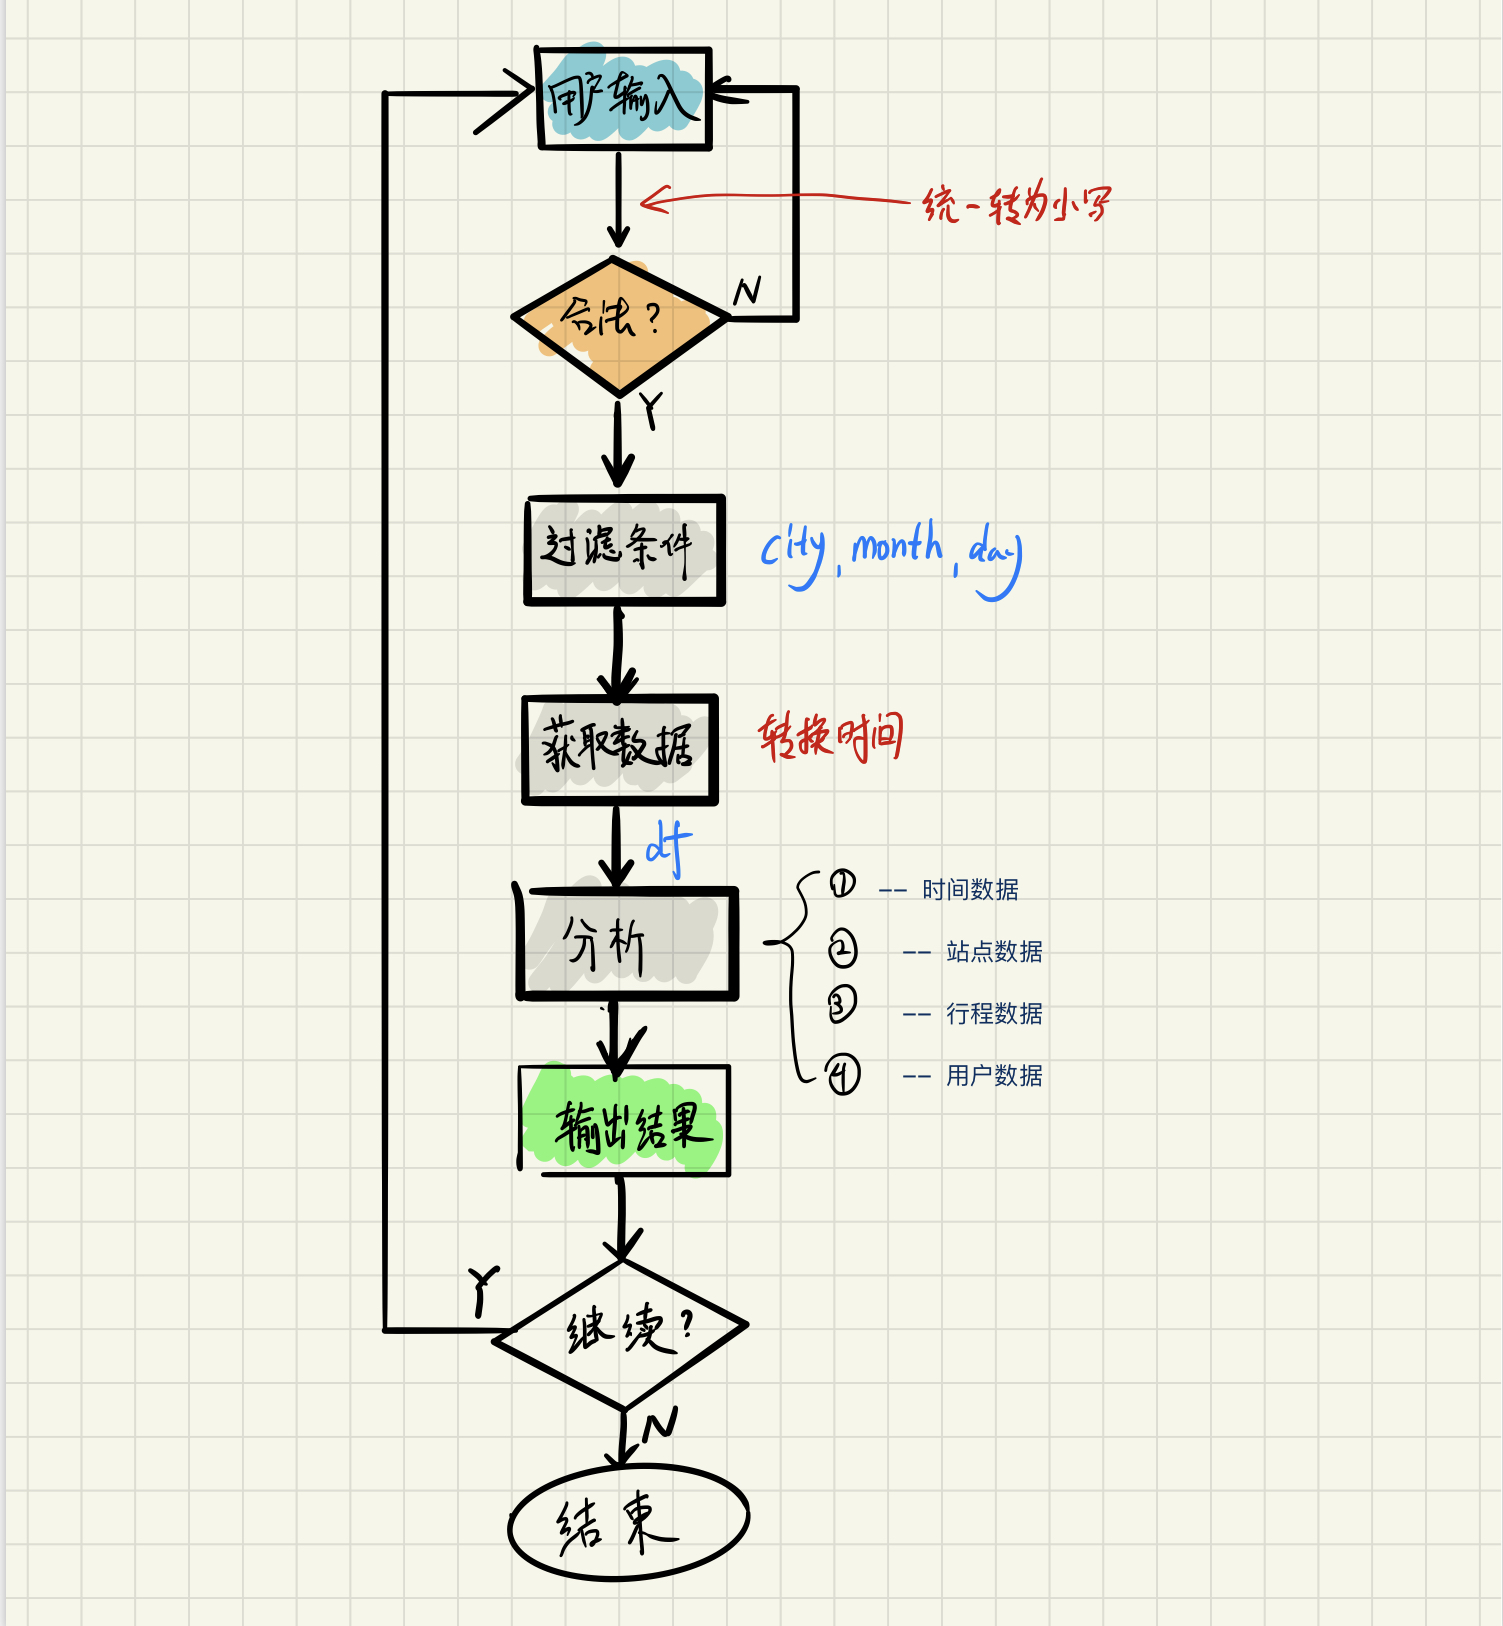 用户输入
统一转为小写
合法？
N
Y
过滤条件
city, month, day
获取数据
转换时间
df
分析
① -- 时间数据
② -- 站点数据
③ -- 行程数据
④ -- 用户数据
输出结果
Y
继续？
N
结束